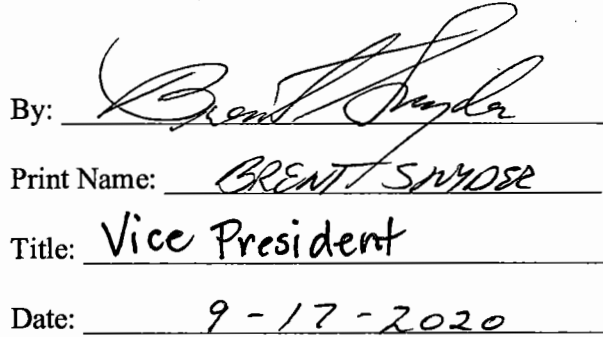 By: Brent Snyder
Print Name: BRENT SNYDER
Title: Vice President
Date: 9-17-2020